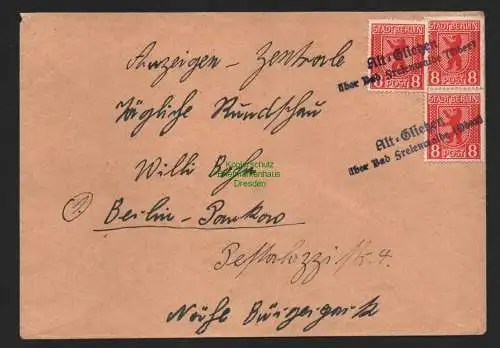 STADT BERLIN
STADT BERLIN
8 POST 8
8 POST 8
Alt-Glietzen
über Bad Freienwalde (Oder)
STADT BERLIN
8 POST 8
Alt-Glietzen
über Bad Freienwalde (Oder)
Anzeigen - Zentrale
Tägliche Rundschau
Willi Behn
Kopierschutz
Briefmarkenhaus
Dresden
Berlin - Pankow
Pestalozzistr. 4.
Nähe Bürgerpark